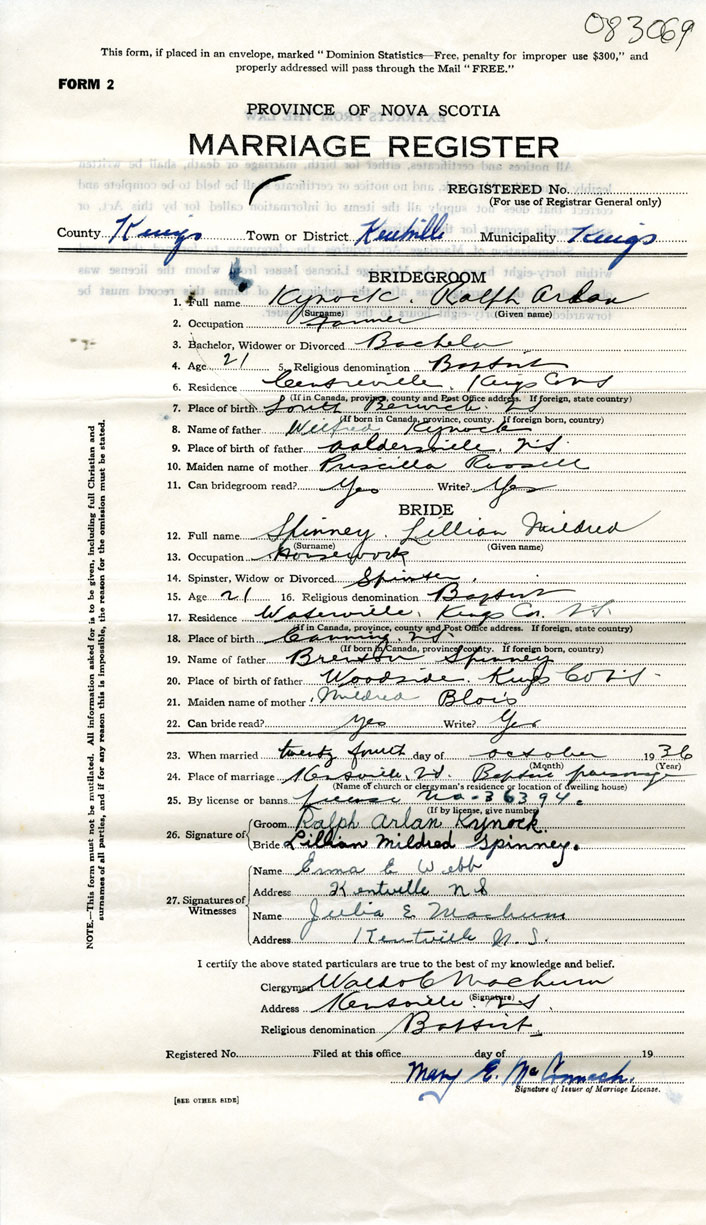 083069
This form, if placed in an envelope, marked "Dominion Statistics—Free, penalty for improper use $300," and
properly addressed will pass through the Mail "FREE."
FORM 2
PROVINCE OF NOVA SCOTIA
MARRIAGE REGISTER
REGISTERED No.
(For use of Registrar General only)
County Kings Town or District Kentville Municipality Kings
BRIDEGROOM
1. Full name Kynock. Ralph Arlan
(Surname) (Given name)
2. Occupation Farmer
3. Bachelor, Widower or Divorced Bachelor
4. Age 21 5. Religious denomination Baptist
6. Residence Centreville, Kings Co NS
(If in Canada, province, county and Post Office address. If foreign, state country)
7. Place of birth South Berwick NS
(If born in Canada, province, county. If foreign born, country)
8. Name of father Wilfred Kynock
9. Place of birth of father Aaldersville, N.S.
10. Maiden name of mother Priscilla Russell
11. Can bridegroom read? Yes Write? Yes
BRIDE
12. Full name Spinney. Lillian Mildred
(Surname) (Given name)
13. Occupation Housework
14. Spinster, Widow or Divorced Spinster.
15. Age 21 16. Religious denomination Baptist
17. Residence Waterville, Kings Co. N.S.
(If in Canada, province, county and Post Office address. If foreign, state country)
18. Place of birth Canning. N.S.
(If born in Canada, province, county. If foreign born, country)
19. Name of father Brenton Spinney
20. Place of birth of father Woodside. Kings Co N.S.
21. Maiden name of mother Mildred Blois
22. Can bride read? yes Write? Yes
23. When married twenty fourth day of october 1936
(Month) (Year)
24. Place of marriage Kentville, N.S. Baptist parsonage
(Name of church or clergyman's residence or location of dwelling house)
25. By license or banns license No. 36394.
(If by license, give number)
26. Signature of Groom Ralph Arlan Kynock.
Bride Lillian Mildred Spinney.
27. Signatures of Witnesses
Name Erma E Webb
Address Kentville N S
Name Julia E. Machum
Address Kentville N. S.
I certify the above stated particulars are true to the best of my knowledge and belief.
Clergyman Waldo C Machum
(Signature)
Address Kentville. N.S.
Religious denomination Baptist.
Registered No. Filed at this office day of 19
Mary E. McCormack.
Signature of Issuer of Marriage License.
[SEE OTHER SIDE]
NOTE.—This form must not be mutilated. All information asked for is to be given, including full Christian and
surnames of all parties, and if for any reason this is impossible, the reason for the omission must be stated.